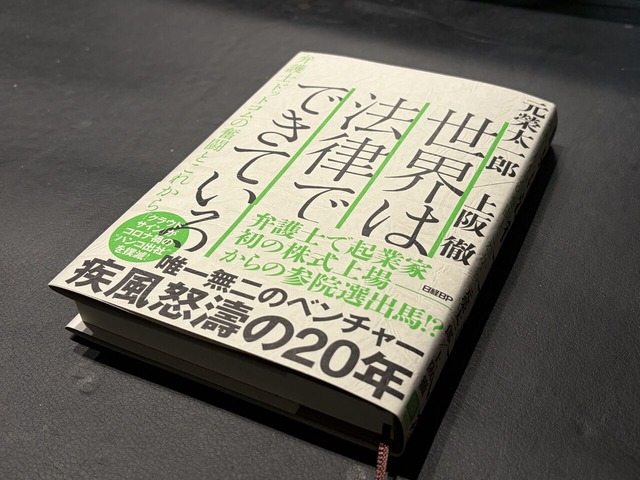 元榮太一郎／上阪徹
世界は
法律で
できている
弁護士ドットコムの奮闘とこれから
弁護士で起業家
初の株式上場
からの参院選出馬!?
日経BP
クラウド
サインが
コロナ禍の
ハンコ出社
を撲滅!
唯一無二のベンチャー
疾風怒濤の20年